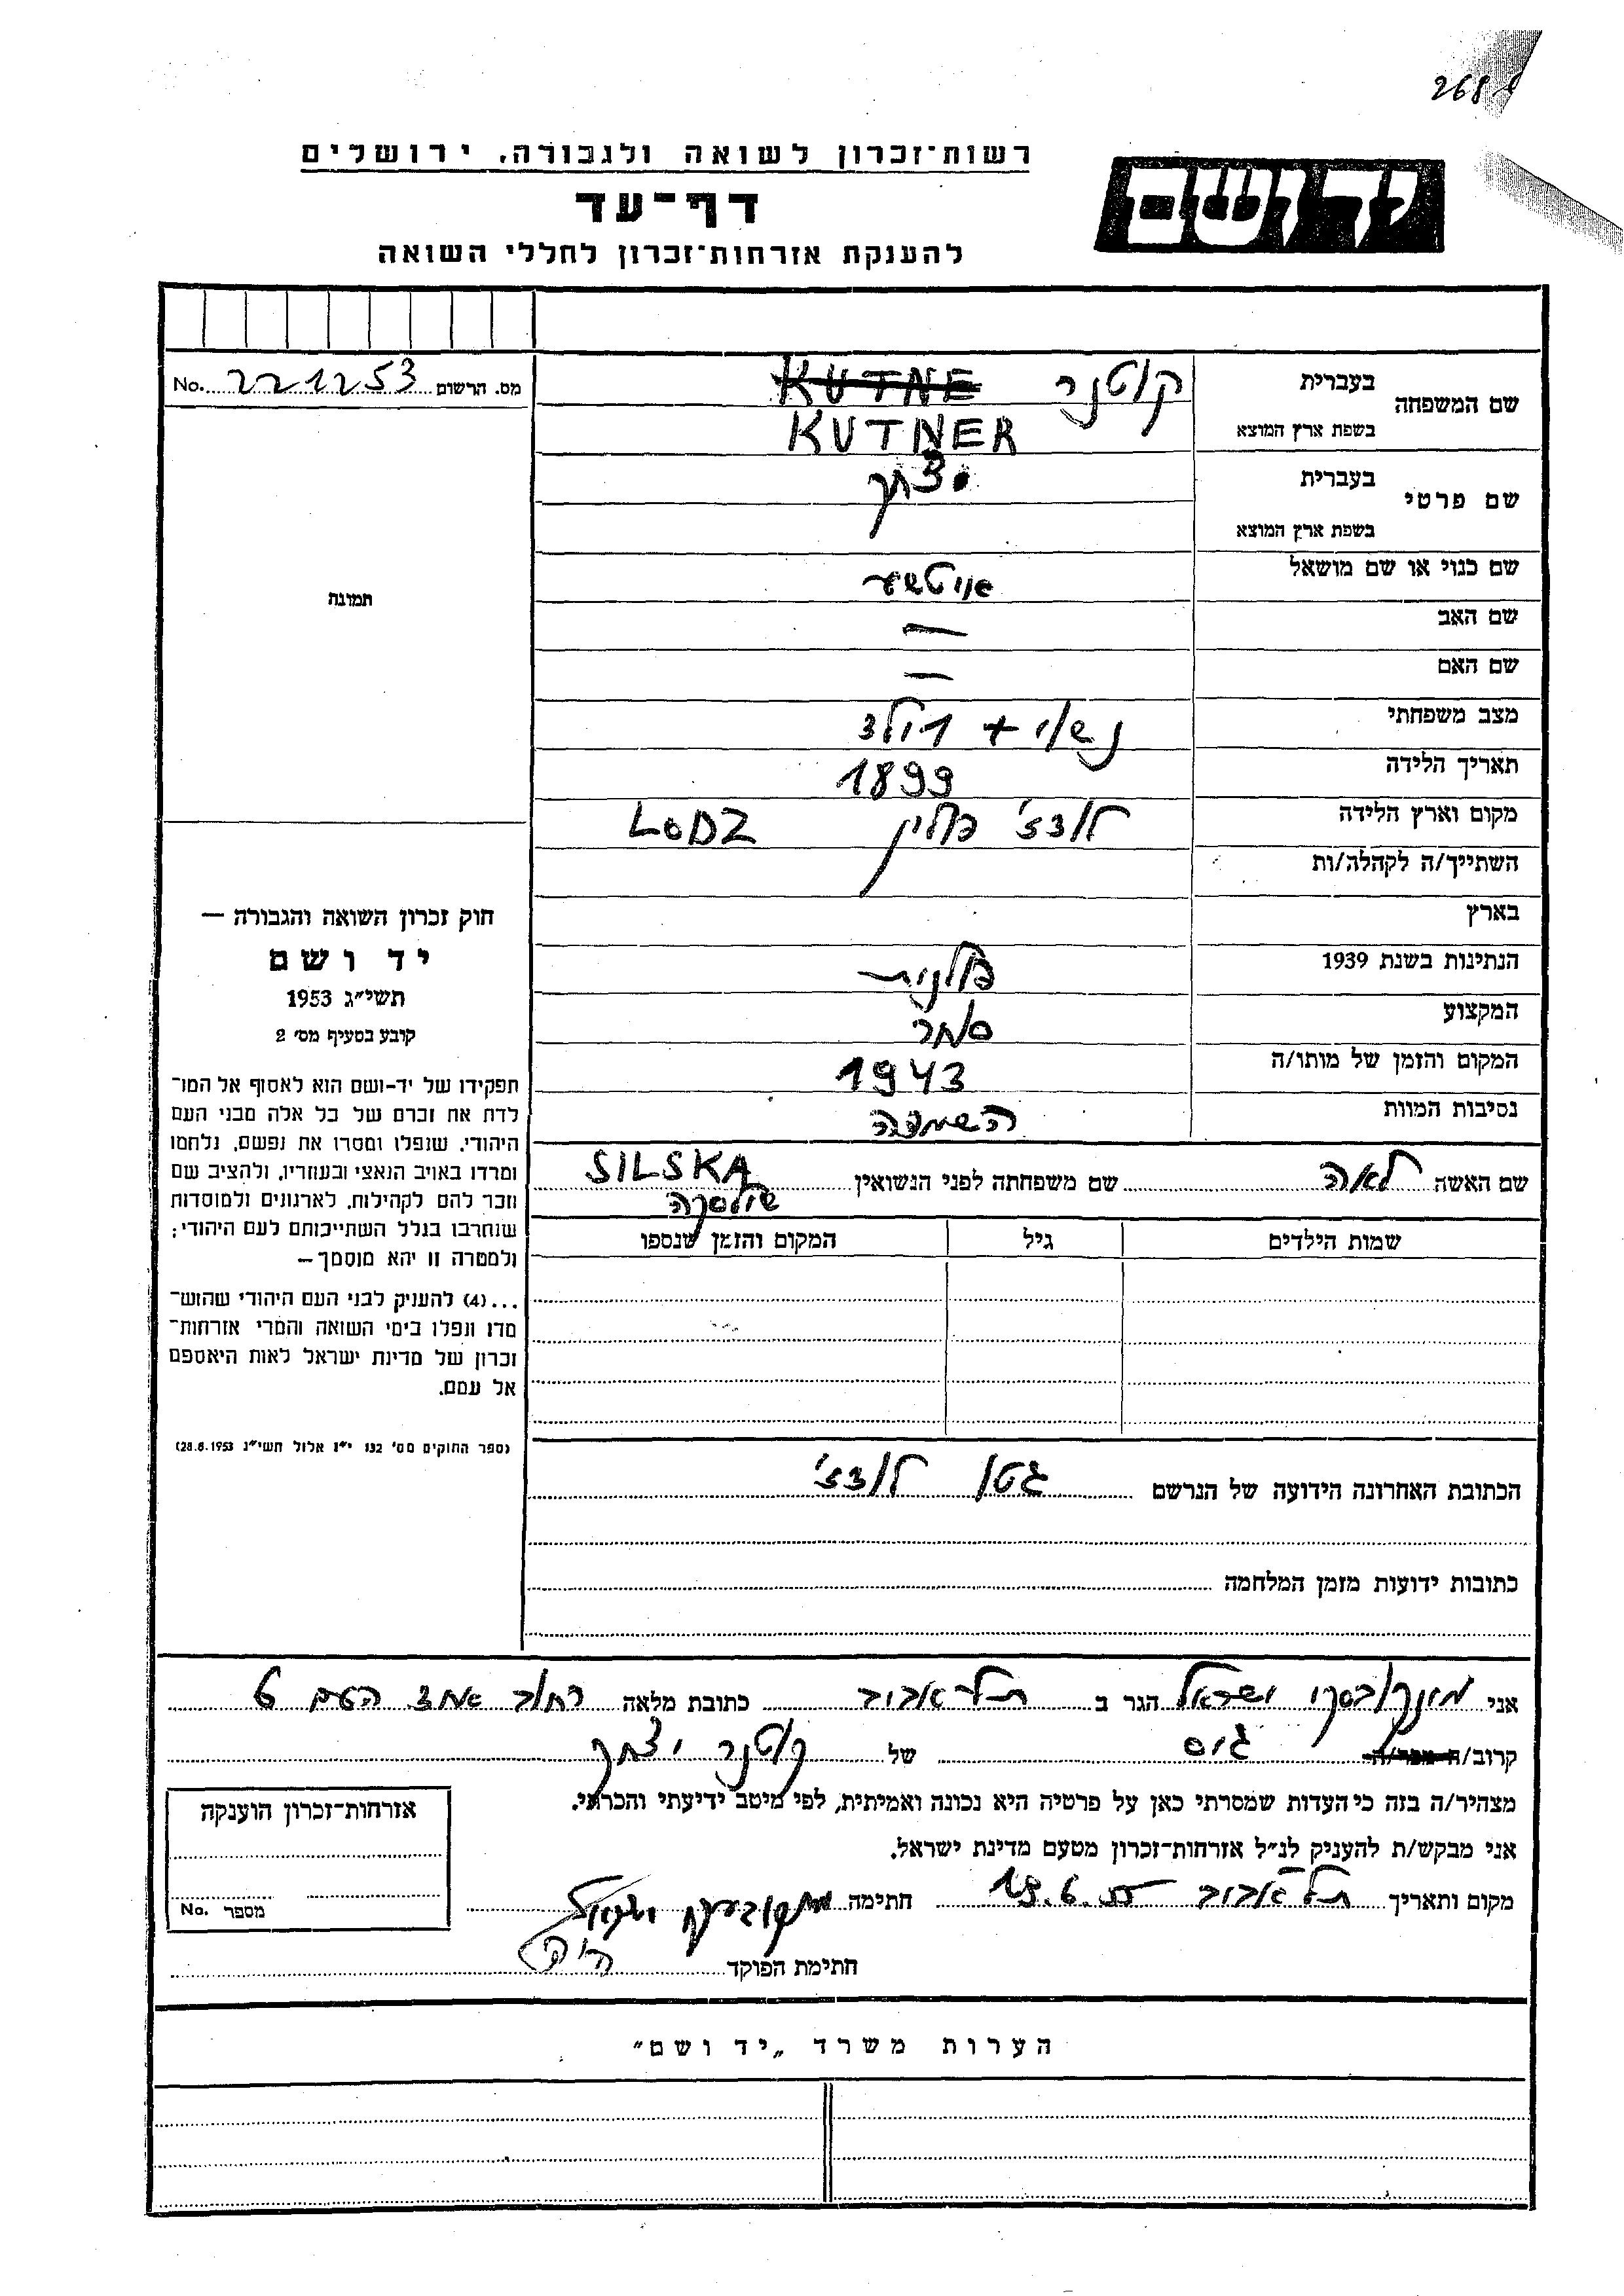 268
רשות־זכרון לשואה ולגבורה, ירושלים
יד ושם
דף־עד
להענקת אזרחות־זכרון לחללי השואה
שם המשפחה בעברית קוטנר KUTNE
בשפת ארץ המוצא KUTNER
שם פרטי בעברית יצחק
בשפת ארץ המוצא
שם כנוי או שם מושאל איטשע
שם האב —
שם האם —
מצב משפחתי נשוי + 1 ילד
תאריך הלידה 1899
מקום וארץ הלידה לודז' פולין LODZ
השתייך/ה לקהלה/ות
בארץ
הנתינות בשנת 1939 פולנית
המקצוע סוחר
המקום והזמן של מותו/ה 1943
נסיבות המוות השמדה
שם האשה לאה שם משפחתה לפני הנשואין SILSKA
שילסקה
שמות הילדים גיל המקום והזמן שנספו
הכתובת האחרונה הידועה של הנרשם גטו לודז'
כתובות ידועות מזמן המלחמה
מס. הרשום 221253 No.
תמונה
חוק זכרון השואה והגבורה —
יד ושם
תשי״ג 1953
קובע בסעיף מס׳ 2
תפקידו של יד-ושם הוא לאסוף אל המו־
לדת את זכרם של כל אלה מבני העם
היהודי, שנפלו ומסרו את נפשם, נלחמו
ומרדו באויב הנאצי ובעוזריו, ולהציב שם
וזכר להם לקהילות, לארגונים ולמוסדות
שנחרבו בגלל השתייכותם לעם היהודי;
ולמטרה זו יהא מוסמך —
...(4) להעניק לבני העם היהודי שהוש־
מדו ונפלו בימי השואה והמרי אזרחות־
זכרון של מדינת ישראל לאות היאספם
אל עמם.
(ספר החוקים מס׳ 132 י״ז אלול תשי״ג 28.8.1953)
אני ישראל הגר ב תל אביב כתובת מלאה רחוב אחד העם 6
קרוב/ה מכר/ה גיס של קוטנר יצחק
מצהיר/ה בזה כי העדות שמסרתי כאן על פרטיה היא נכונה ואמיתית, לפי מיטב ידיעתי והכרתי.
אני מבקש/ת להעניק לנ״ל אזרחות־זכרון מטעם מדינת ישראל.
מקום ותאריך תל אביב 19.6.55 חתימה
חתימת הפוקד
אזרחות־זכרון הוענקה
מספר No.
הערות משרד „יד ושם״